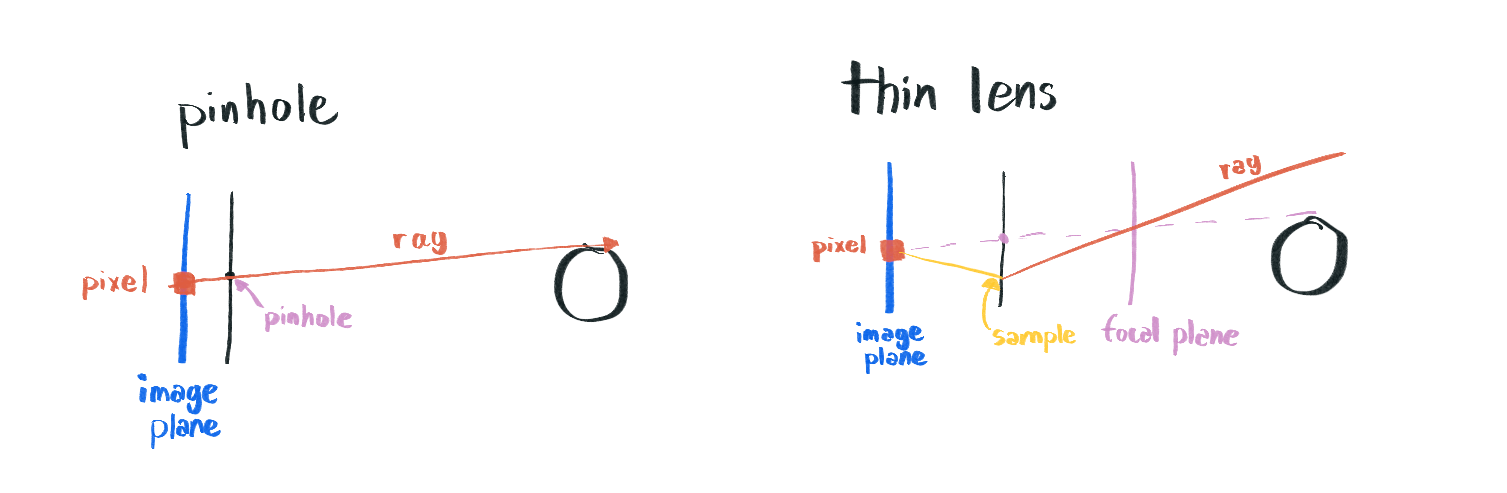 pinhole
ray
pixel
pinhole
image
plane
thin lens
ray
pixel
image
plane
sample
focal plane